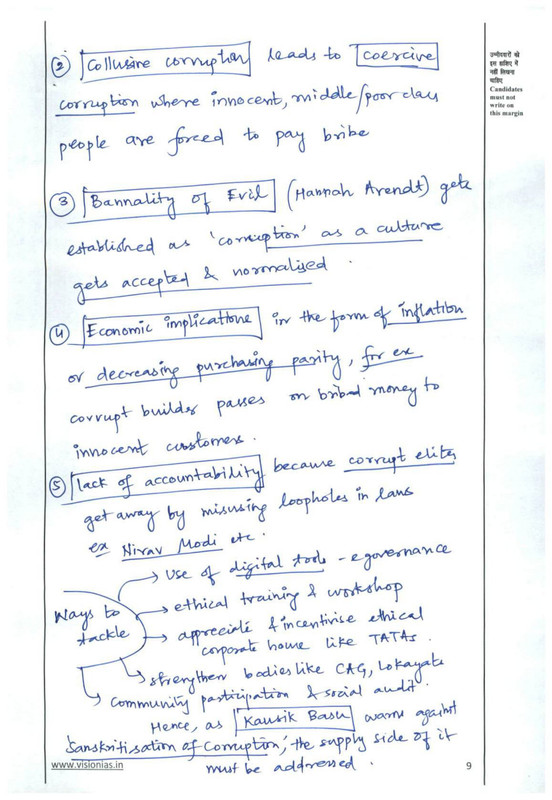 ② Collusive corruption leads to coercive
corruption where innocent, middle/poor class
people are forced to pay bribe
③ Bannality of Evil (Hannah Arendt) gets
established as 'corruption' as a culture
gets accepted & normalised.
④ Economic implications in the form of inflation
or decreasing purchasing parity, for ex
corrupt builder passes on bribed money to
innocent customers.
⑤ lack of accountability because corrupt elites
get away by misusing loopholes in laws
ex Nirav Modi etc.
Ways to tackle
→ Use of digital tools - egovernance
→ ethical training & workshop
→ appreciate & incentivise ethical
corporate house like TATAs.
→ strengthen bodies like CAG, Lokayata
→ community participation & social audit.
Hence, as Kausik Basu warns against
'Sanskritisation of Corruption', the supply side of it
must be addressed.
उम्मीदवारों को
इस हाशिए में
नहीं लिखना
चाहिए
Candidates
must not
write on
this margin
www.visionias.in
9